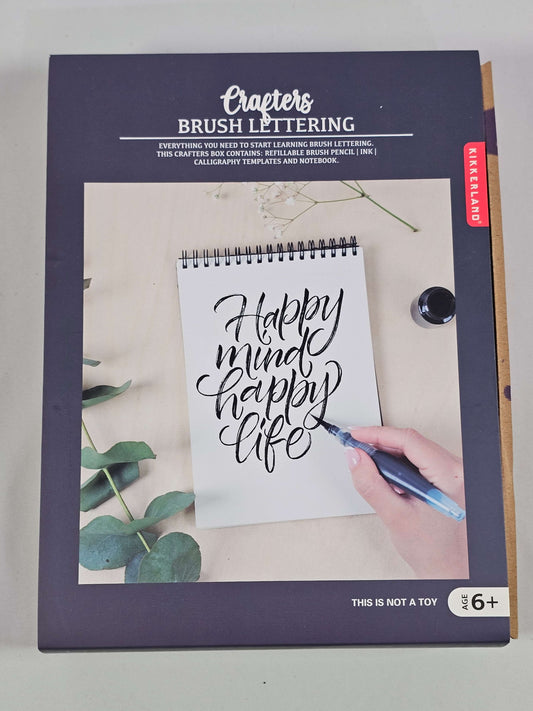 Crafters
BRUSH LETTERING
EVERYTHING YOU NEED TO START LEARNING BRUSH LETTERING.
THIS CRAFTERS BOX CONTAINS: REFILLABLE BRUSH PENCIL | INK |
CALLIGRAPHY TEMPLATES AND NOTEBOOK.
KIKKERLAND®
Happy
mind
happy
life
THIS IS NOT A TOY
AGE 6+